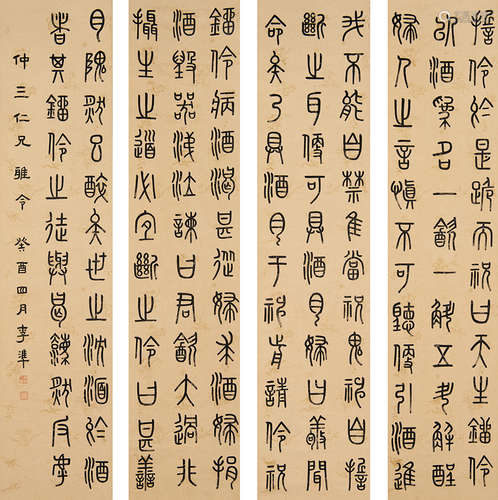 誓伶於是跪而祝曰天生鎦伶
以酒爲名一飲一斛五斗解酲
婦人之言慎不可聽便引酒進
我不能自禁隹當祝鬼神自誓
斷之耳便可具酒肉婦曰敬聞
命矣乃具酒肉于神前請伶祝
鎦伶病酒渴甚從婦求酒婦捐
酒毀器涕泣諫曰君飲太過非
攝生之道必宜斷之伶曰甚善
肉隗然已醉矣世之沈酒於酒
者其鎦伶之徒與曷然反本
仲三仁兄雅令 癸酉四月李準